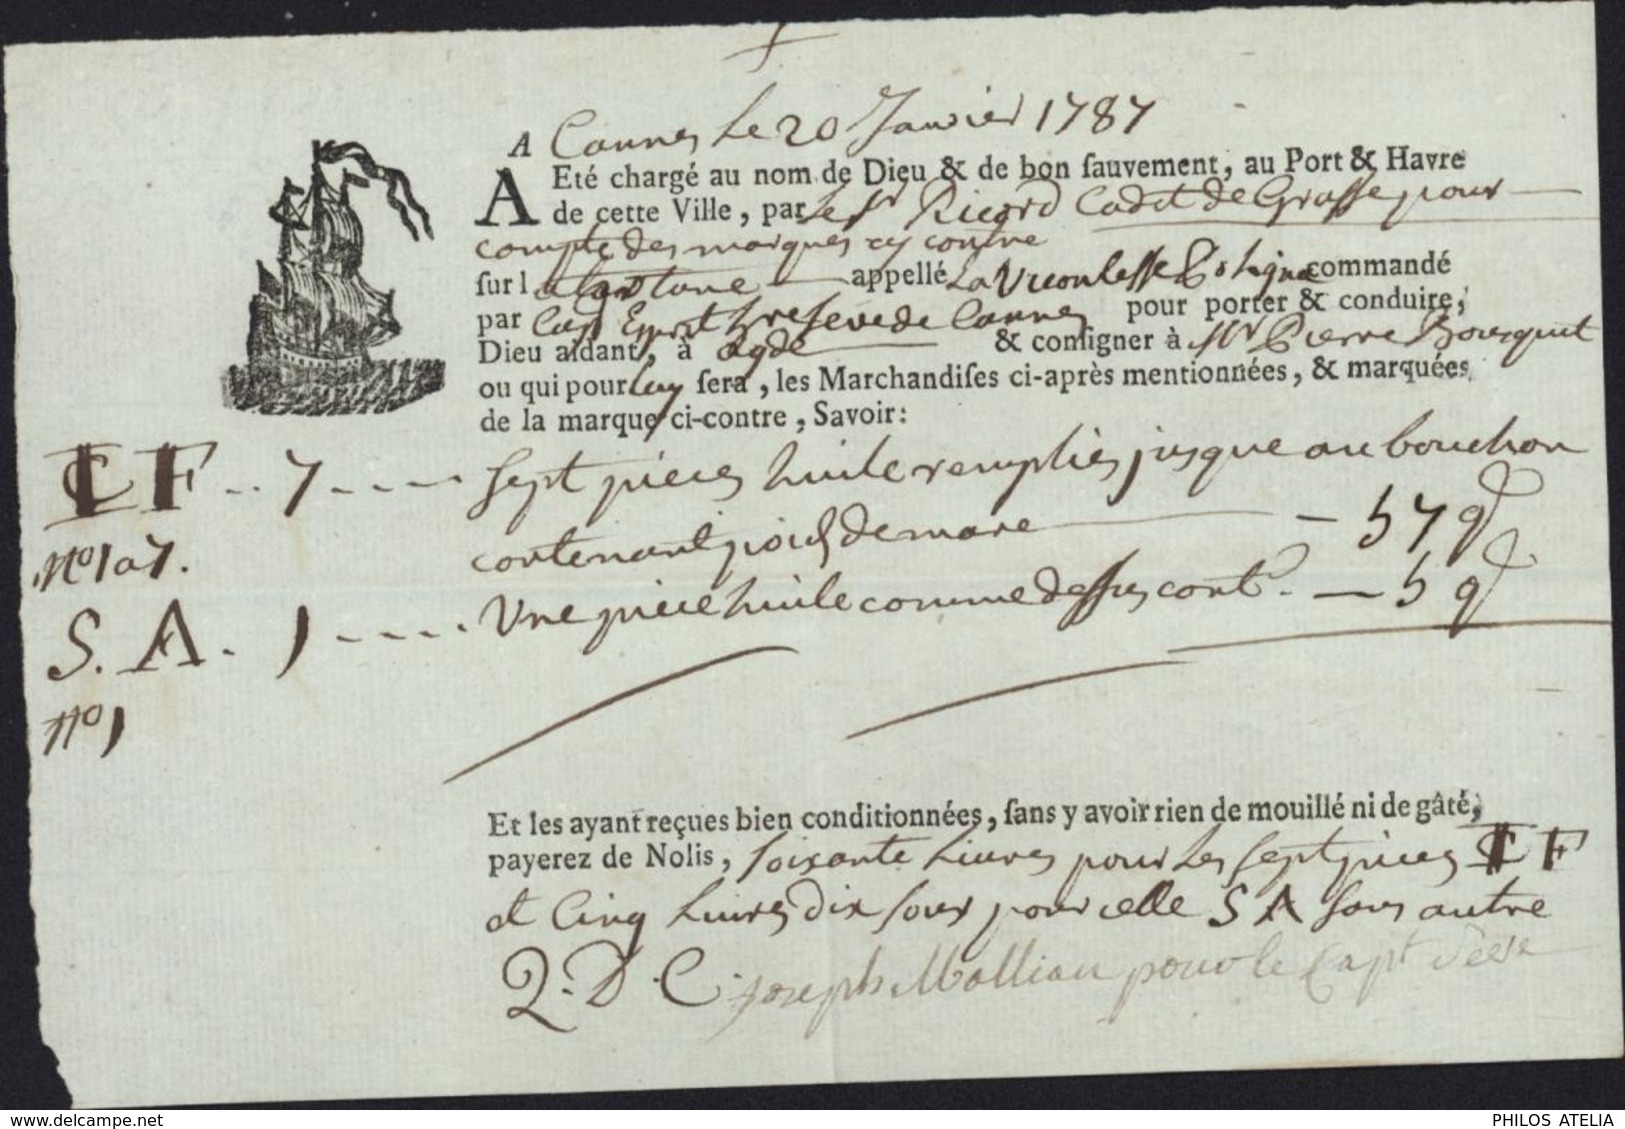 A Cannes le 20 Janvier 1787
A Eté chargé au nom de Dieu & de bon sauvement, au Port & Havre
de cette Ville, par le Sr Ricord Cadet de Grasse pour
compte des marques cy contre
sur l a tartane appellé La Vicontesse commandé
par Cap Esprit de Cannes pour porter & conduire,
Dieu aidant, à agde & consigner à Mr Pierre Bousquet
ou qui pour luy sera, les Marchandises ci-après mentionnées, & marquées
de la marque ci-contre, Savoir:
CF .. 7 .... sept pieces huile remplies jusque au bouchon
contenant poids de marc — 57 q
No 1 a 7.
S. A. 1 .... Une piece huile comme dessus cont. — 5 q
No 1
Et les ayant reçues bien conditionnées, sans y avoir rien de mouillé ni de gâté,
payerez de Nolis, soixante Livres pour les sept pieces CF
et Cinq Livres dix sous pour celle S A sans autre
Q. D. C. joseph pour le Capt
delcampe.net
PHILOS ATELIA